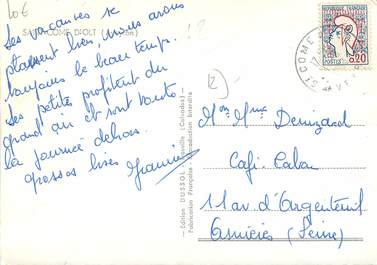 10€
SAINT-COME D'OLT
Les vacances se
passent bien, nous avons
toujours le beau temps.
Les petits profitent du
grand air et sont toute
la journée dehors.
grosses bises
— Edition DUSSOL,
Fabrication Française — Reproduction Interdite
RÉPUBLIQUE FRANÇAISE
POSTES 0,20
ST COME
AVEYRON
Mr Mme Denizard
Café Tabac
11 av. d'Argenteuil
Asnières (Seine)